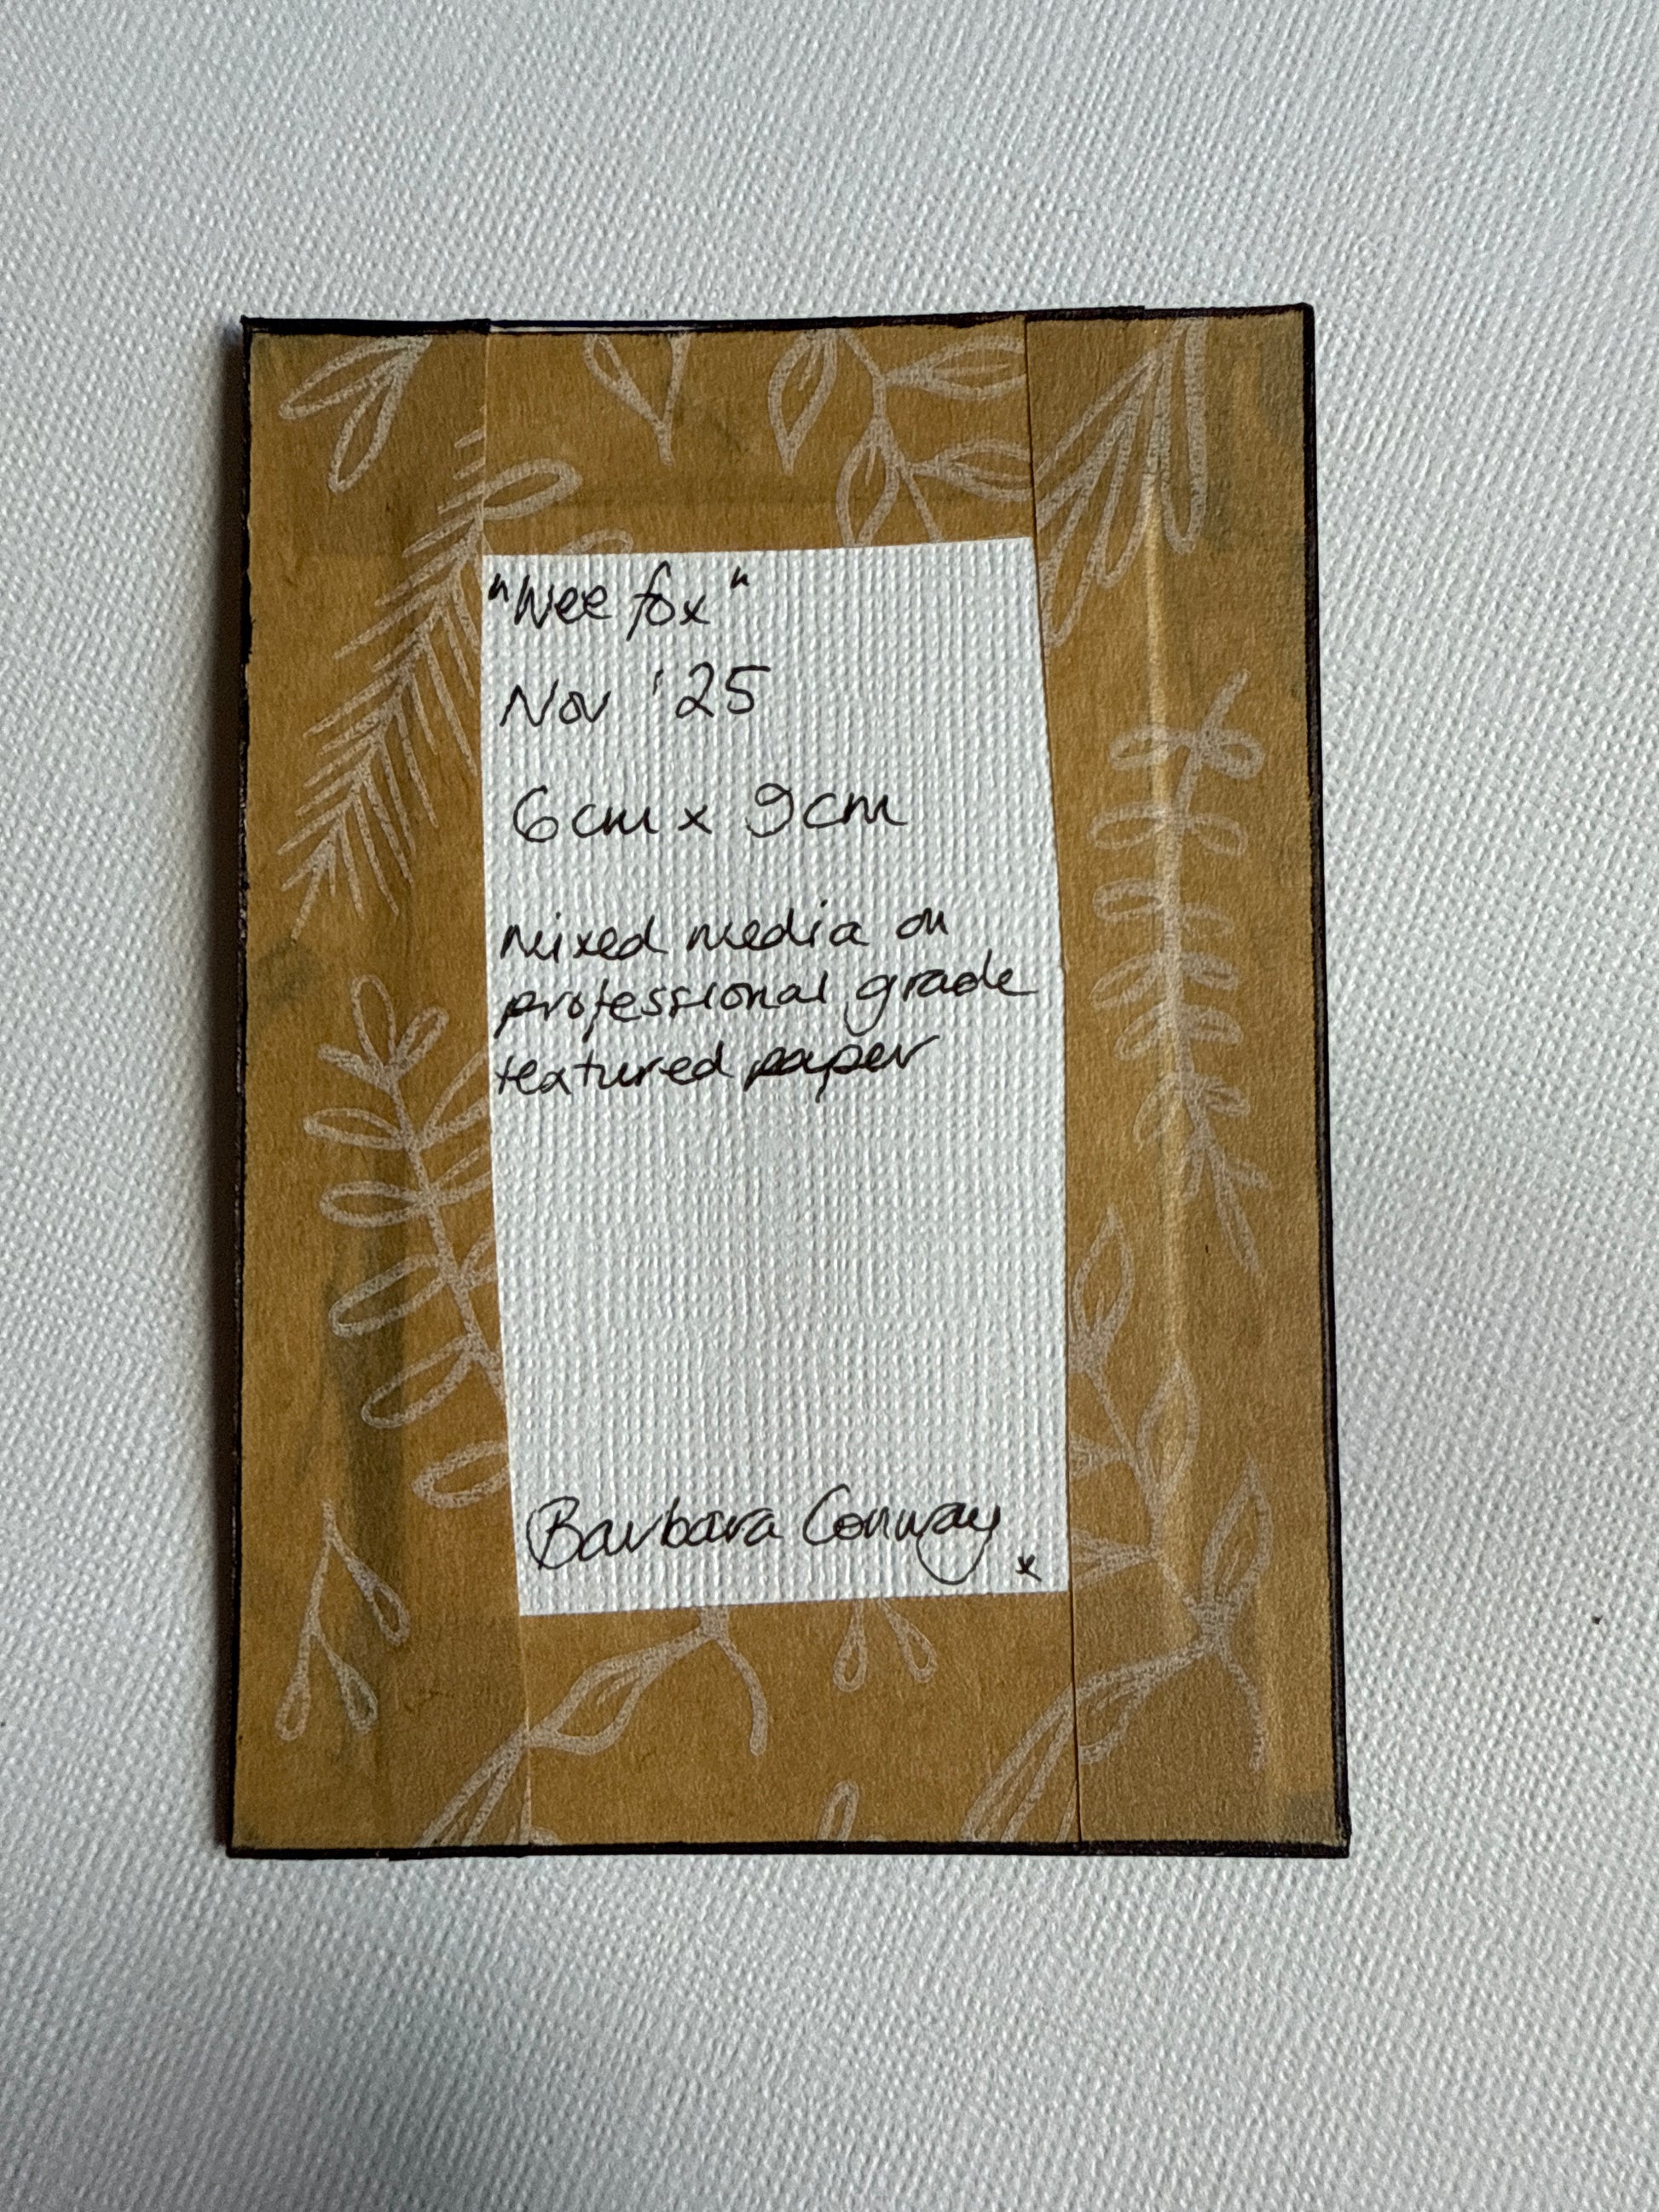 "Wee fox"
Nov '25
6cm x 9cm
mixed media on
professional grade
textured paper
Barbara Conway x